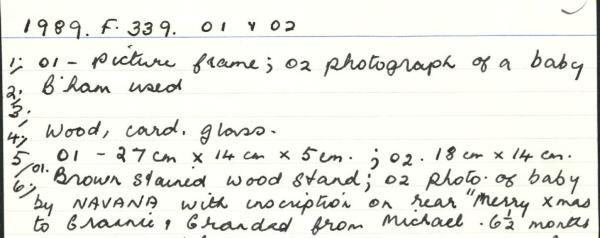 1989. F. 339. 01 & 02
1; 01 - Picture frame; 02 photograph of a baby
2; B'ham used
3;
4; Wood, card. glass.
5 01 - 27cm x 14 cm x 5cm. ; 02. 18cm x 14cm.
6; 01. Brown stained wood stand; 02 photo. of baby
by NAVANA with inscription on rear "Merry Xmas
to Grannie & Grandad from Michael. 6½ months